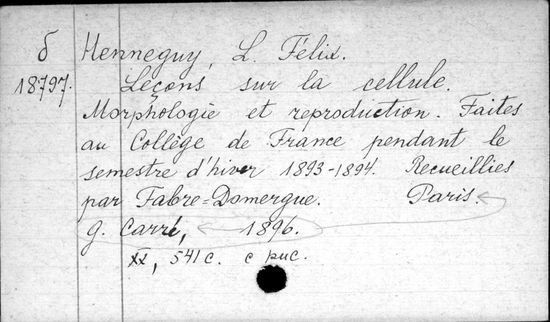 б Henneguy, L. Félix.
18797. Leçons sur la cellule.
Morphologie et reproduction. Faites
au Collège de France pendant le
semestre d'hiver 1893-1894. Recueillies
par Fabre=Domergue. Paris.
G. Carré, 1896.
XX, 541 с. с рис.